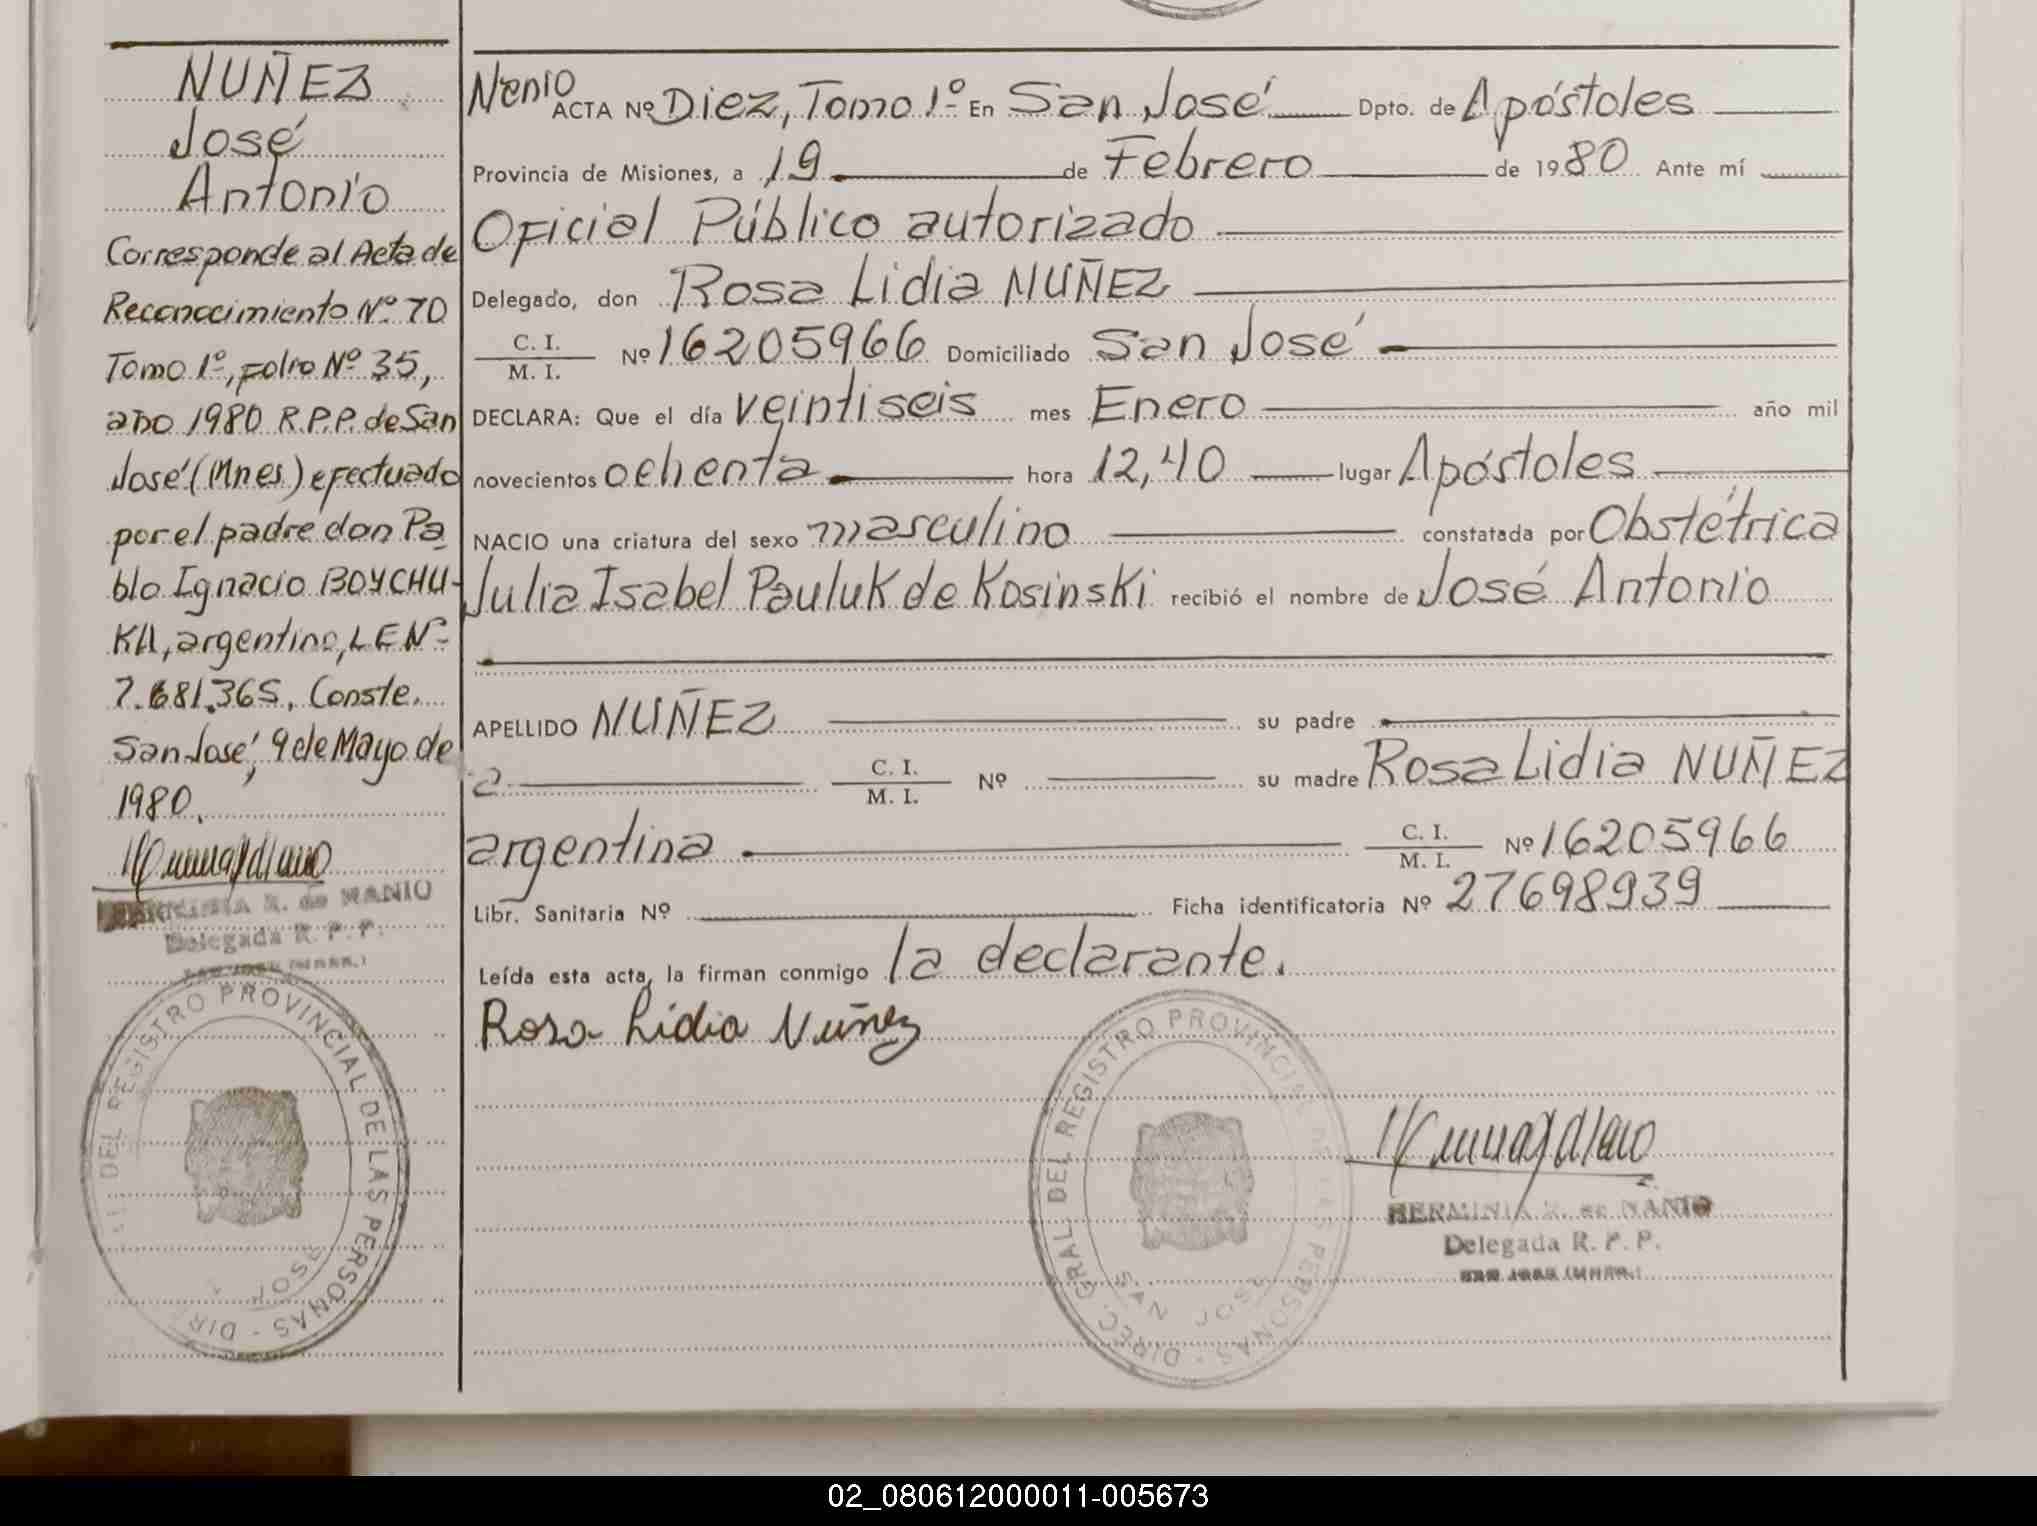 NUÑEZ
José
Antonio
Corresponde al Acta de
Reconocimiento Nº 70
Tomo 1º, folio Nº 35,
año 1980 R.P.P. de San
José (Mnes) efectuado
por el padre don Pa
blo Ignacio BOYCHU-
KA, argentino, L E Nº
7.681.365. Conste.
San José, 9 de Mayo de
1980.
HERMINIA R. de NANIO
Delegada R. P. P.
SAN JOSE (MNES.)
DEL REGISTRO PROVINCIAL DE LAS PERSONAS - DIR
JOSE
Nenio
ACTA Nº Diez, Tomo 1º En San José Dpto. de Apóstoles
Provincia de Misiones, a 19 de Febrero de 1980 Ante mí
Oficial Público autorizado
Delegado, don Rosa Lidia NUÑEZ
C. I.
M. I. Nº 16205966 Domiciliado San José
DECLARA: Que el día veintiseis mes Enero año mil
novecientos ochenta hora 12,40 lugar Apóstoles
NACIO una criatura del sexo masculino constatada por Obstétrica
Julia Isabel Pauluk de Kosinski recibió el nombre de José Antonio
APELLIDO NUÑEZ su padre
a C. I.
M. I. Nº su madre Rosa Lidia NUÑEZ
argentina C. I.
M. I. Nº 16205966
Libr. Sanitaria Nº Ficha identificatoria Nº 27698939
Leída esta acta, la firman conmigo la declarante.
Rosa Lidia Nuñez
DIREC. GRAL DEL REGISTRO PROVINCIAL DE LAS PERSONAS
SAN JOSE
HERMINIA R. de NANIO
Delegada R. P. P.
SAN JOSE (MNES.)
02_080612000011-005673